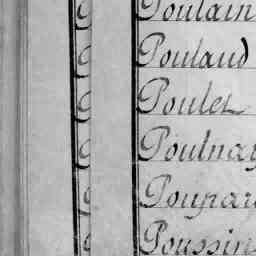 Poulain
Poulaud
Poulet
Poulnay
Poupar
Poussin